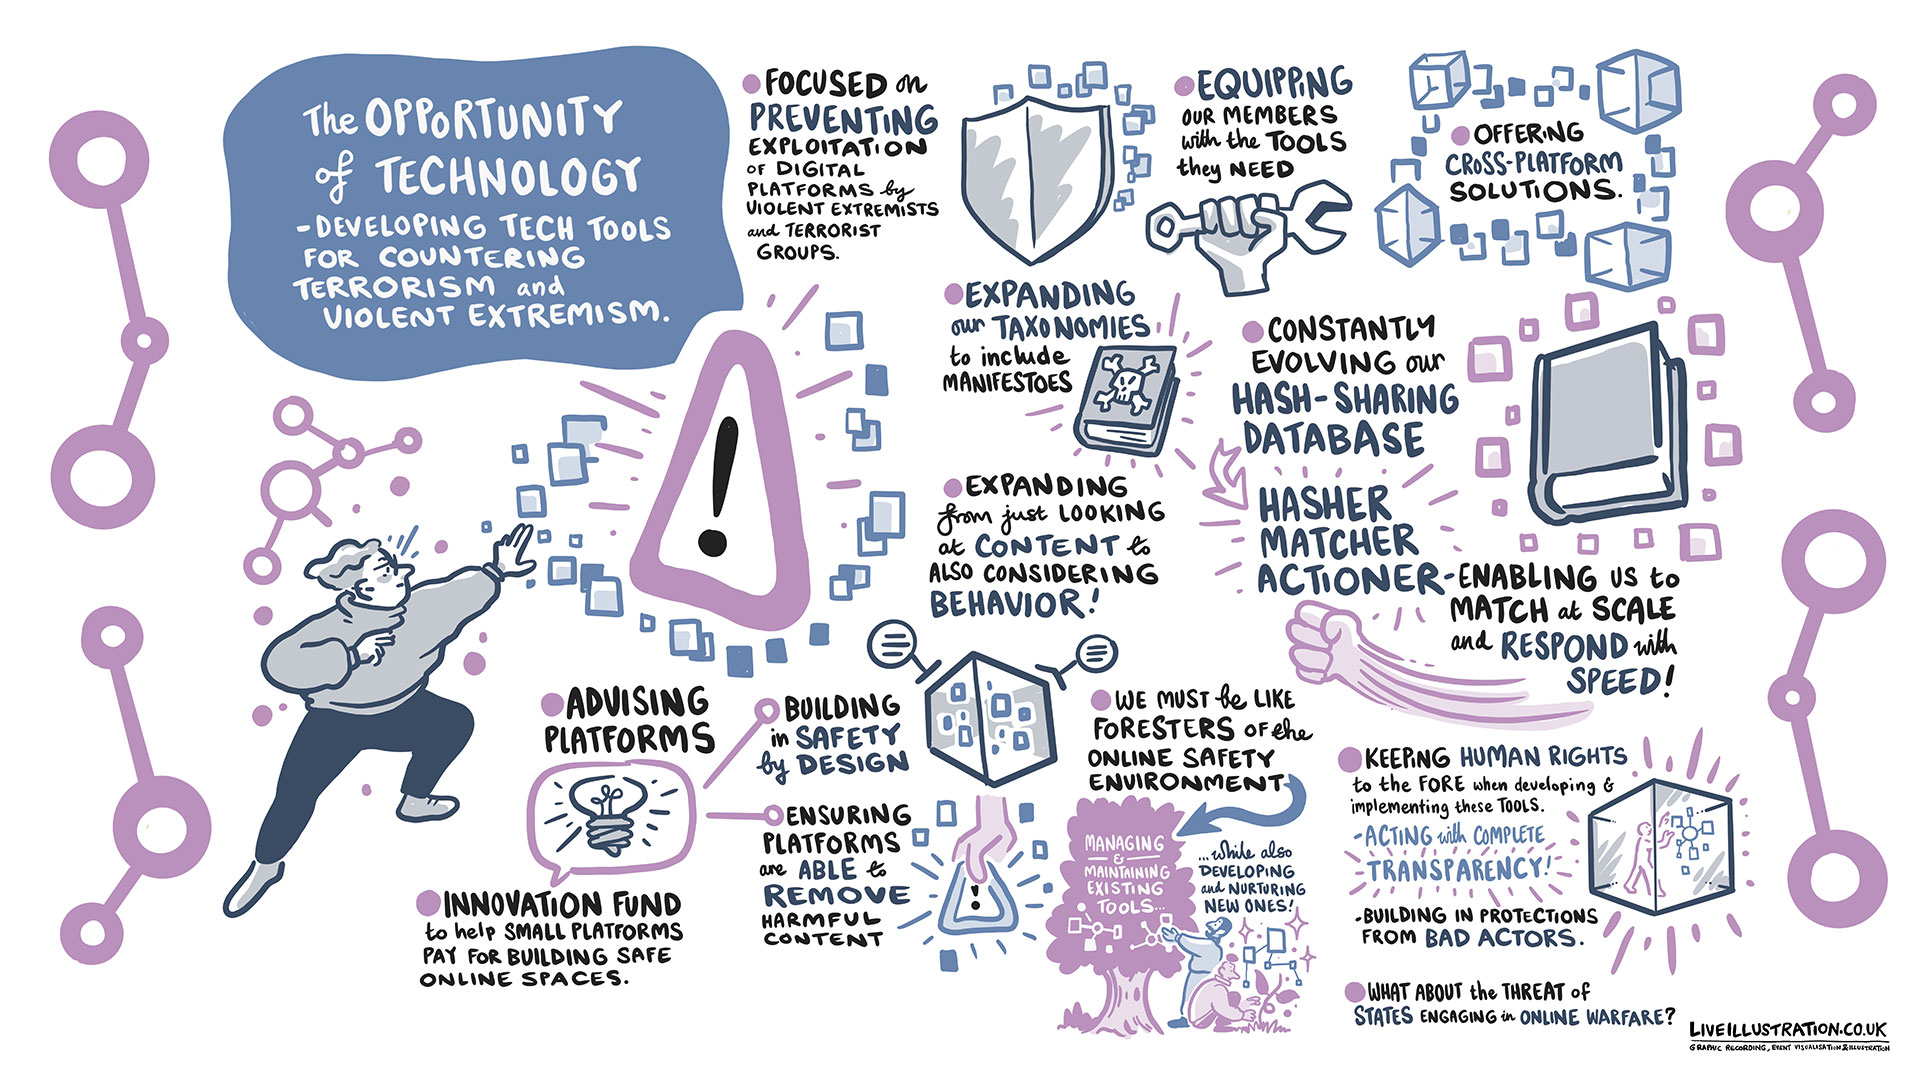 The OPPORTUNITY
of TECHNOLOGY
-DEVELOPING TECH TOOLS
FOR COUNTERING
TERRORISM and
VIOLENT EXTREMISM.
FOCUSED on
PREVENTING
EXPLOITATION
OF DIGITAL
PLATFORMS by
VIOLENT EXTREMISTS
and TERRORIST
GROUPS.
EQUIPPING
OUR MEMBERS
with the TOOLS
they NEED
OFFERING
CROSS-PLATFORM
SOLUTIONS.
EXPANDING
our TAXONOMIES
to include
MANIFESTOES
CONSTANTLY
EVOLVING our
HASH-SHARING
DATABASE
HASHER
MATCHER
ACTIONER-ENABLING US to
MATCH at SCALE
and RESPOND with
SPEED!
EXPANDING
from just LOOKING
at CONTENT to
ALSO CONSIDERING
BEHAVIOR!
!
ADVISING
PLATFORMS
BUILDING
in SAFETY
by DESIGN
ENSURING
PLATFORMS
are ABLE to
REMOVE
HARMFUL
CONTENT
!
INNOVATION FUND
to help SMALL PLATFORMS
PAY FOR BUILDING SAFE
ONLINE SPACES.
WE MUST be LIKE
FORESTERS OF the
ONLINE SAFETY
ENVIRONMENT
MANAGING
&
MAINTAINING
EXISTING
TOOLS...
...while also
DEVELOPING
and NURTURING
NEW ONES!
KEEPING HUMAN RIGHTS
to the FORE when developing &
implementing these TOOLS.
-ACTING with COMPLETE
TRANSPARENCY!
-BUILDING IN PROTECTIONS
FROM BAD ACTORS.
WHAT ABOUT the THREAT of
STATES ENGAGING in ONLINE WARFARE?
LIVEILLUSTRATION.CO.UK
GRAPHIC RECORDING, EVENT VISUALISATION & ILLUSTRATION